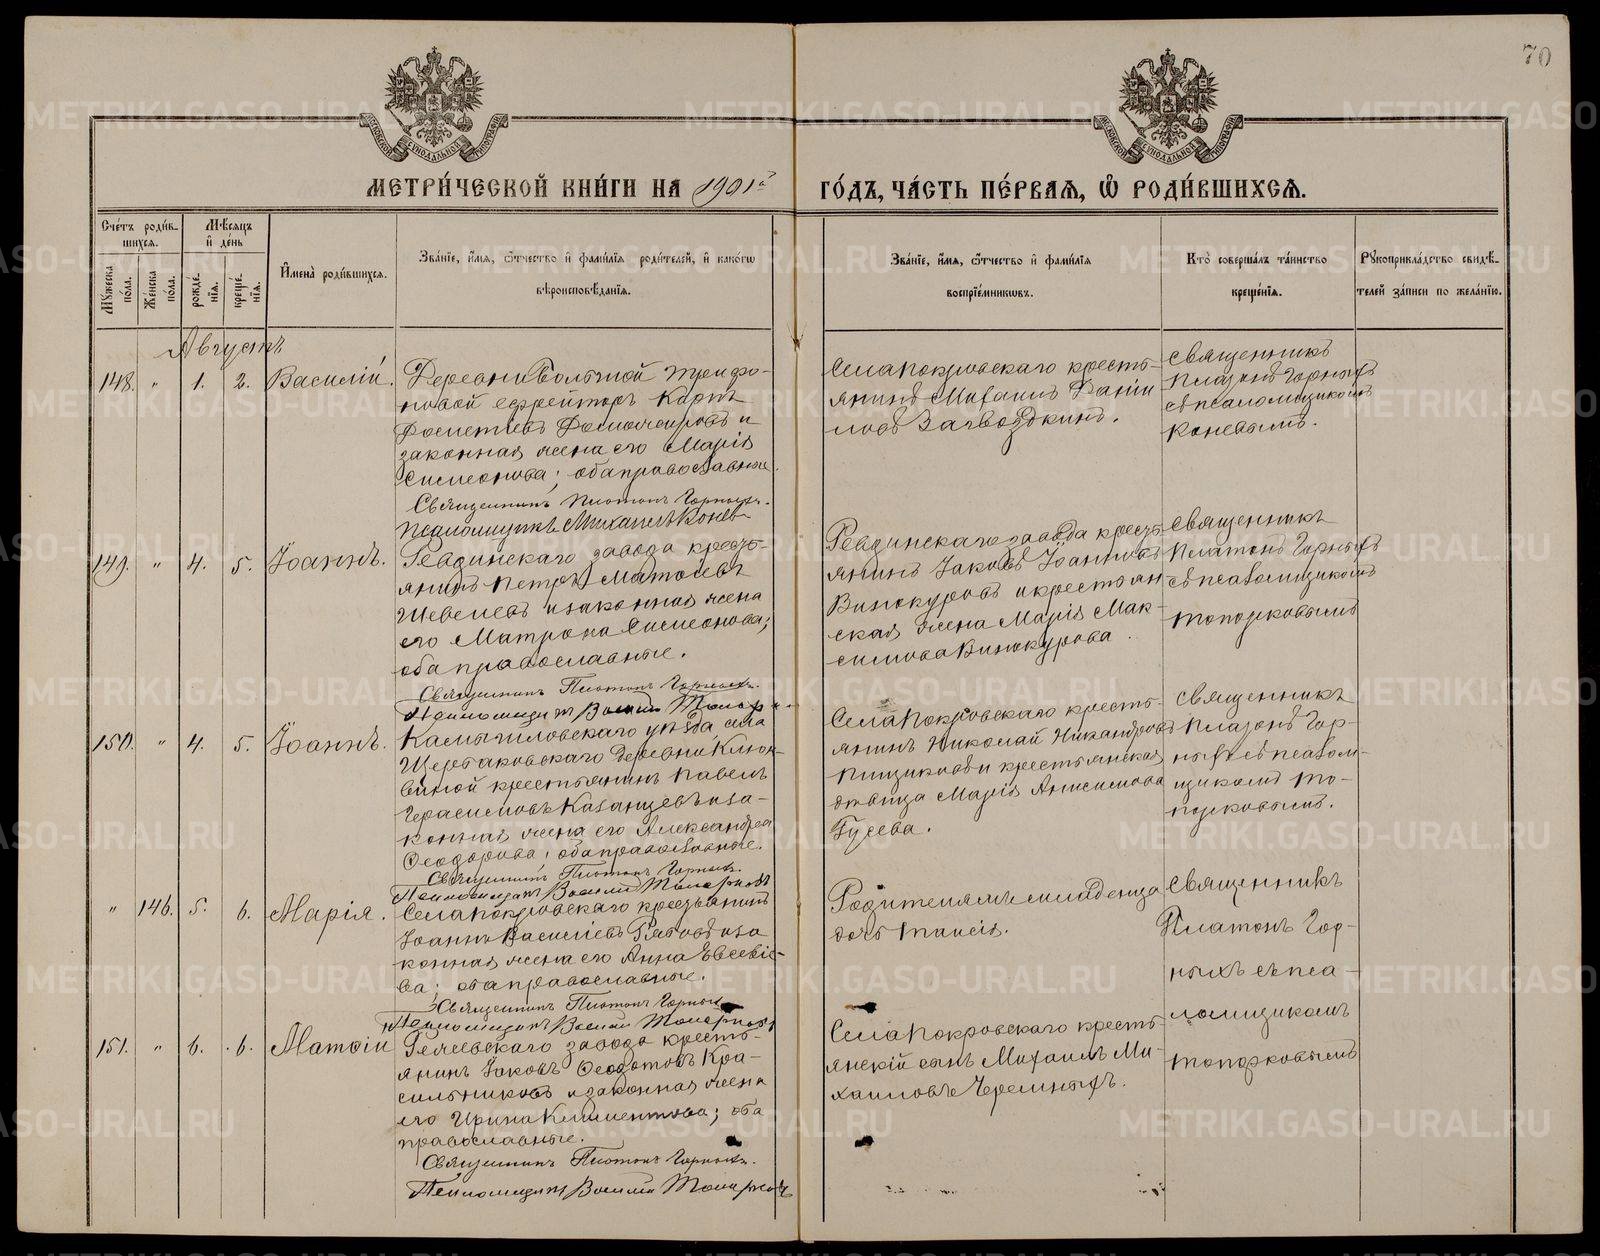 70
МОСКОВСКОЙ СѴНОДАЛЬНОЙ ТИПОГРАФІИ
МОСКОВСКОЙ СѴНОДАЛЬНОЙ ТИПОГРАФІИ
МЕТРИ́ЧЕСКОЙ КНИ́ГИ НА 1901й ГО́ДЪ, ЧА́СТЬ ПЕ́РВАЯ, Ѡ҆ РОДИ́ВШИХСЯ.
Сче́тъ роди́в-
шихся.
Мꙋжеска по́ла.
Же́нска по́ла.
Мѣ́сяцъ
и҆ де́нь
рожде́-
нїя.
креще́-
нїя.
И҆мена̀ роди́вшихся.
Зва́нїе, и҆́мя, ѻ҆́тчество и҆ фами́лїя роди́телей, и҆ како́гѡ
вѣроисповѣ́данїя.
Зва́нїе, и҆́мя, ѻ҆́тчество и҆ фами́лїя
воспрїе́мникѡвъ.
Кто̀ соверша́лъ та́инство
креще́нїя.
Рꙋкоприкла́дство свидѣ́-
телей за́писи по жела́нїю.
Августъ
148. " 1. 2. Василій.
Деревни Большой Трифо-
новой ефрейторъ Карпъ
законная жена его Марія
Симеонова; оба православные.
Священникъ Платонъ Горныхъ.
Псаломщикъ Михаилъ Коневъ
Села Покровскаго кресть-
янинъ Михаилъ Даніи
ловъ Загвоздкинъ.
Священникъ
Платонъ Горныхъ
съ псаломщикомъ
Коневымъ.
149. " 4. 5. Іоаннъ.
Ревдинскаго завода кресть-
янинъ Петръ Матѳіевъ
Шевелевъ и законная жена
его Матрона Симеонова;
оба православные.
Священникъ Платонъ Горныхъ.
Псаломщикъ Василій Топорк
Ревдинскаго завода кресть-
янинъ Іаковъ Іоанновъ
Винокуровъ и крестьян
ская жена Марія Мак-
симова Винокурова.
Священникъ
Платонъ Горныхъ
съ псаломщикомъ
Топорковымъ
150. " 4. 5. Іоаннъ.
Камышловскаго уѣзда, села
Щербаковскаго деревни Клюк-
виной крестьянинъ Павелъ
Герасимовъ Казанцевъ и за-
конная жена его Александра
Ѳеодорова; оба православные.
Священникъ Платонъ Горныхъ.
Псаломщикъ Василій Топорковъ
Села Покровскаго кресть-
янинъ Николай Никандровъ
Пищиковъ и крестьянская
дѣвица Марія Анисимова
Гусева.
Священникъ
Платонъ Гор-
ныхъ съ псалом-
щикомъ То-
порковымъ.
" 146. 5. 6. Марія.
Села Покровскаго крестьянинъ
Іоаннъ Василіевъ Рябовъ и за
конная жена его Анна Евсевіе-
ва; оба православные.
Священникъ Платонъ Горныхъ
Псаломщикъ Василій Топорковъ
Родителямъ младенца
дочь Таисія.
Священникъ
Платонъ Гор-
ныхъ съ пса-
ломщикомъ
Топорковымъ
151. " 6. 6. Матѳій
завода кресть-
янинъ Іаковъ Ѳеодотовъ Кра-
сильниковъ и законная жена
его Ирина Климентова; оба
православные.
Священникъ Платонъ Горныхъ.
Псаломщикъ Василій Топорковъ
Села Покровскаго кресть-
янскій сынъ Михаилъ Ми-
хаиловъ Черемныхъ.
METRIKI.GASO-URAL.RU